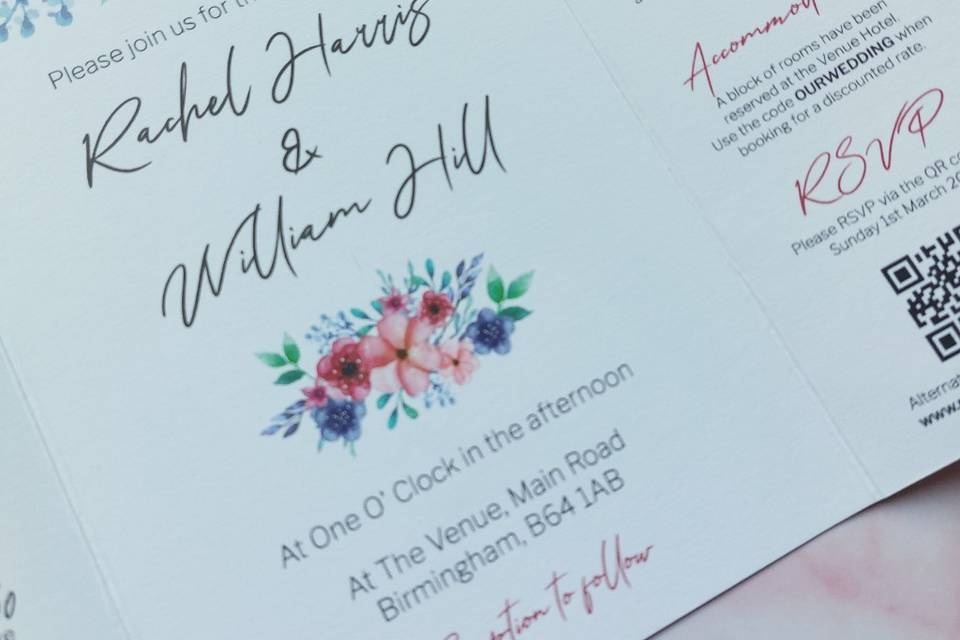 Please join us for
Rachel Harris
&
William Hill
At One O' Clock in the afternoon
At The Venue, Main Road
Birmingham, B64 1AB
to follow
A block of rooms have been
reserved at the Venue Hotel.
Use the code OURWEDDING when
booking for a discounted rate.
RSVP
Please RSVP via the QR
Sunday 1st March